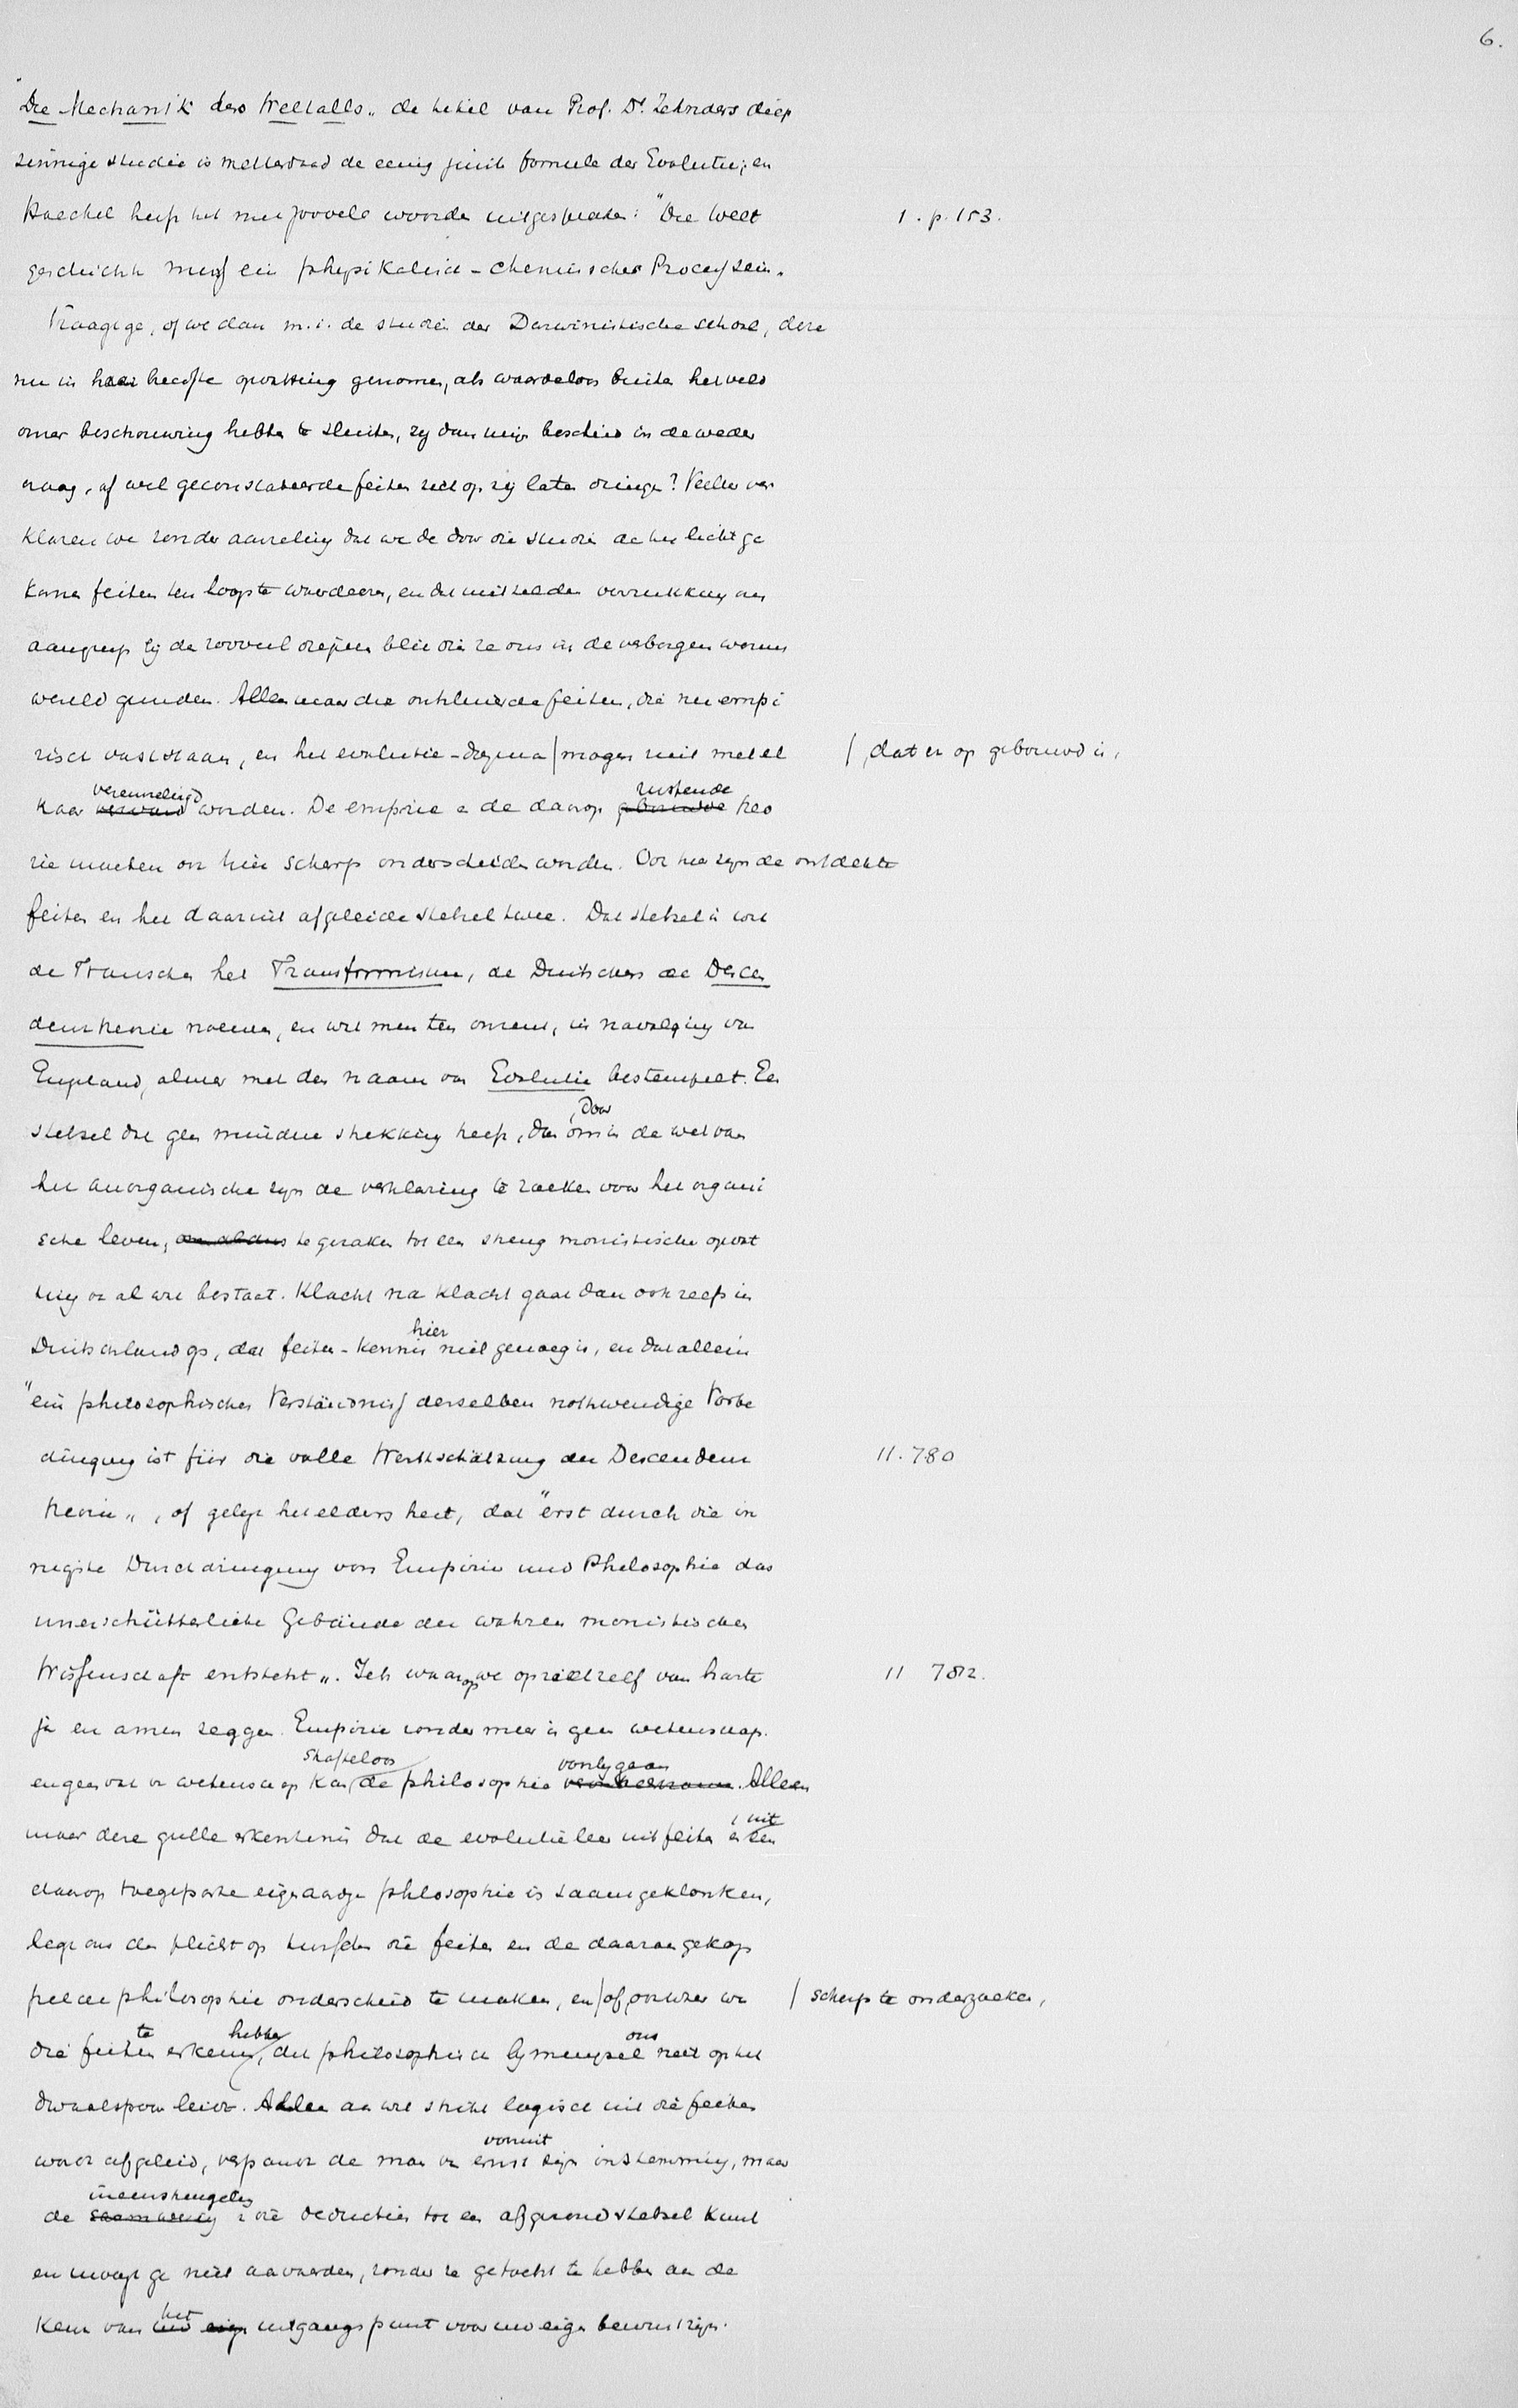 6.
"Die Mechanik des Weltalls„ de titel van Prof. Dr. Zehnders diep
zinnige studie is metterdaad de eenig juiste formule der Evolutie; en
Haeckel heeft het met zooveel woorden uitgesproken: "Die Welt 1. p. 153.
geschichte muss ein physikalisch-chemischer Process sein„
Vraagt ge, of we dan m. i. de studien der Darwinistische school, deze
nu in haar breedste opvatting genomen, als waardeloos buiten het veld
onzer beschouwing hebben te sluiten, zij dan mijn bescheid in de weder
vraag, of wel geconstateerde feiten zich op zij laten dringen? Veeleer ver
klaren we zonder aarzeling dat we de door die studie aan het licht ge
komen feiten ten hoogste waardeeren, en dat niet zelden verrukking ons
aangreep bij de zooveel dieper blik die ze ons in de verborgen wereld
wereld gunden. Alleen maar die ontsluierde feiten, die nu empi
risch vaststaan, en het evolutie-dogma | mogen niet met el | dat er op gebouwd is,
kaar verward vereenzelvigd worden. De empirie en de daarop gebouwde rustende theo
rie moeten ook hier scherp onderscheiden worden. Ook hier zijn de ontdekte
feiten en het daaruit afgeleide stelsel twee. Dat stelsel is wat
de Franschen het Transformisme, de Duitschers de Descen
denztheorie noemen, en wat men ten onzent, in navolging van
Engeland, alweer met den naam van Evolutie bestempelt. Een
stelsel dat geen mindere strekking heeft, dan om, door in de wet van
het anorganische zijn de verklaring te zoeken voor het organi
sche leven, om aldus te geraken tot een streng monistische opvat
ting van al wat bestaat. Klacht na klacht gaat dan ook reeds in
Duitschland op, dat feiten-kennis hier niet genoeg is, en dat allein
"ein philosophisches Verständniss derselben nothwendige Vorbe
dingung ist für die volle Werthschätzung der Descendenz 11. 780
theorie„, of gelijk het elders heet, dat "erst durch die in
nigste Durchdringung von Empirie und Philosophie das
unerschütterliche Gebäude der wahren monistischen
Wissenschaft entsteht„. Iets waarop we op zichzelf van harte 11 782.
ja en amen zeggen. Empirie zonder meer is geen wetenschap.
en geen vak van wetenschap kan straffeloos de philosophie voorbijgaan. Alleen
maar deze gulle erkentenis dat de evolutieleer uit feiten en uit een
daarop toegepaste eigenaardige philosophie is saamgeklonken,
legt ons den plicht op tusschen die feiten en de daaraan gekop
pelde philosophie onderscheid te maken, en | of, ook waar we | scherp te onderzoeken,
die feiten te erkennen hebben, dit philosophisch bijmengsel ons niet op het
dwaalspoor leidt. Alleen aan wat strikt logisch uit die feiten
wordt afgeleid, verpandt de man van ernst vooruit zijn instemming, maar
de ineenstrengeling van die deductien tot een afgerond stelsel kunt
en moogt ge niet aanvaarden, zonder ze getoetst te hebben aan de
keur van het uw eigen uitgangspunt voor uw eigen bewustzijn.